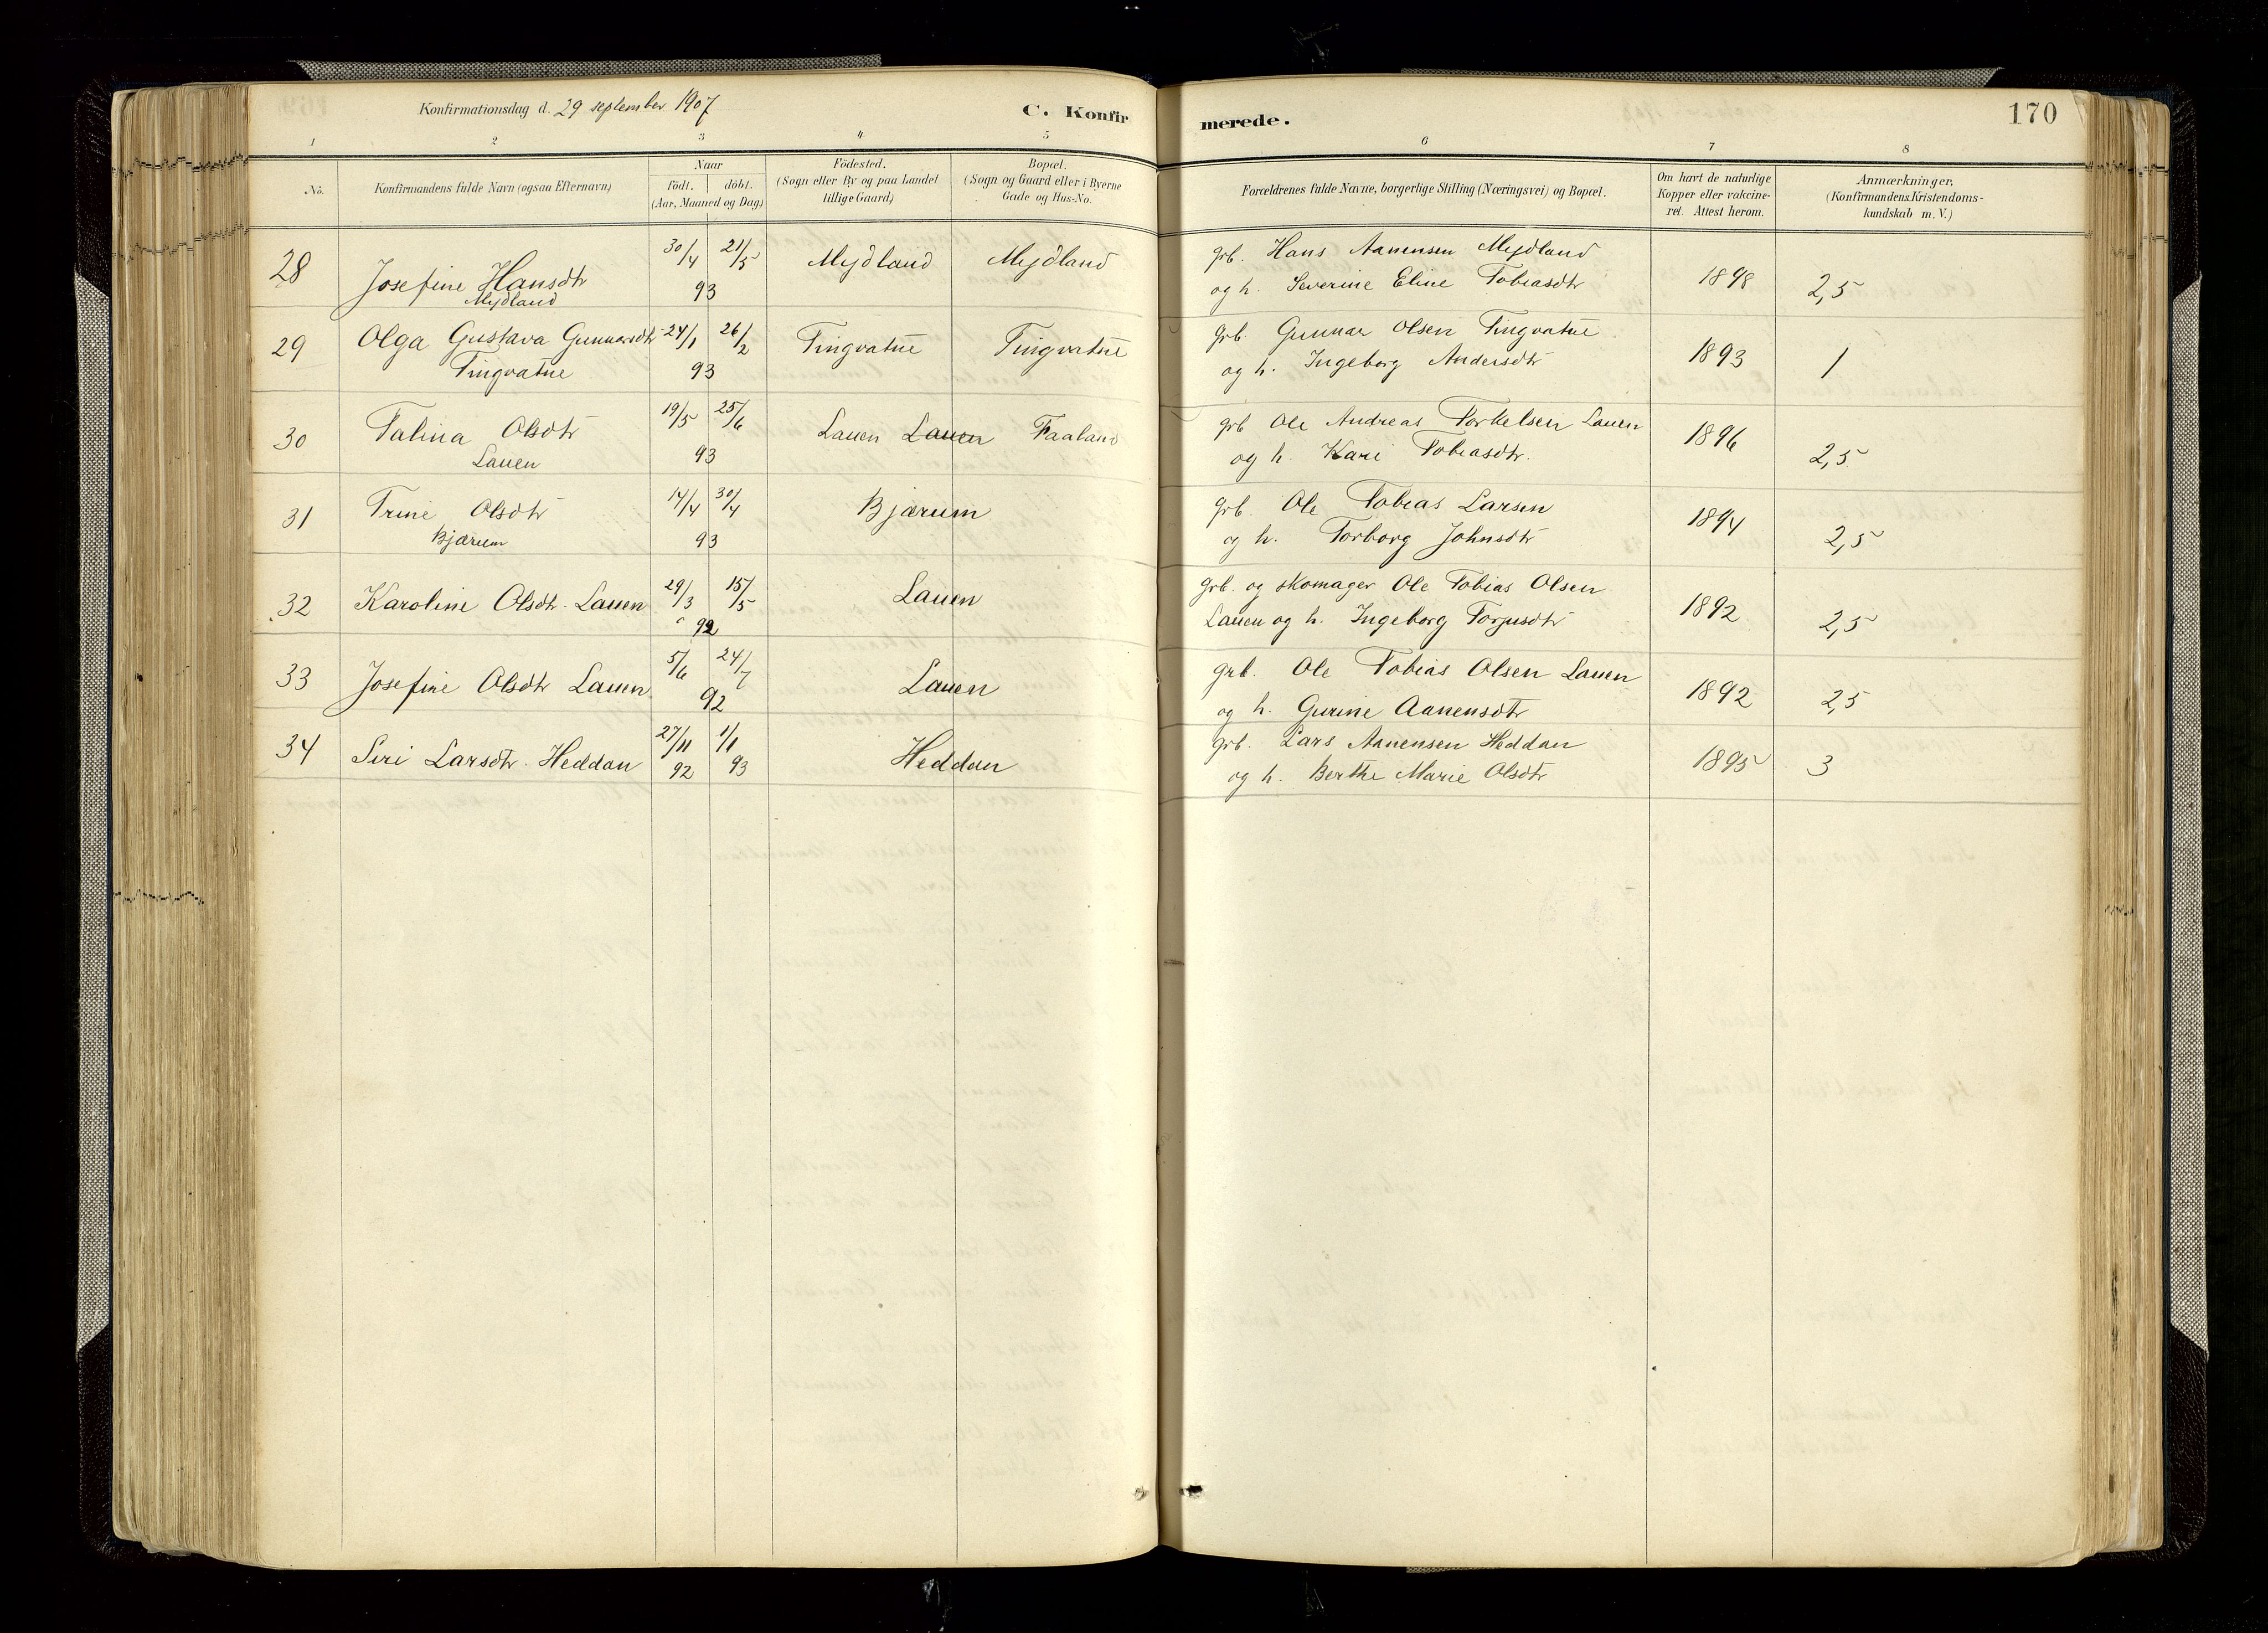 Konfirmationsdag d. 29 september 1907
C. Konfirmerede.
170
1 2 3 4 5 6 7 8
No.
Konfirmandens fulde Navn (ogsaa Efternavn)
Naar
födt. döbt.
(Aar, Maaned og Dag)
Födested.
(Sogn eller By og paa Landet
tillige Gaard)
Bopæl.
(Sogn og Gaard eller i Byerne
Gade og Hus-No.
Forældrenes fulde Navne, borgerlige Stilling (Næringsvei) og Bopæl.
Om havt de naturlige
Kopper eller vakcine-
ret. Attest herom.
Anmærkninger,
(Konfirmandens Kristendoms-
kundskab m. V.)
28 Josefine Hansdtr 30/4 21/5 Mydland Mydland grb. Hans Aanensen Mydland 1898 2,5
Mydland 93 og h. Severine Eline Tobiasdtr
29 Olga Gustava Gunnarsdtr 24/1 26/2 Tingvatne Tingvatne grb. Gunnar Olsen Tingvatne 1893 1
Tingvatne 93 og h. Ingeborg Andersdtr
30 Talina Olsdtr 19/5 25/6 Lauen Lauen Faaland grb Ole Andreas Torkelsen Lauen 1896 2,5
Lauen 93 og h. Kari Tobiasdtr.
31 Trine Olsdtr 14/4 30/4 Bjærum grb. Ole Tobias Larsen 1894 2,5
Bjærum 93 og h. Torborg Johnsdtr
32 Karoline Olsdtr. Lauen 29/3 15/5 Lauen grb. og skomager Ole Tobias Olsen 1892 2,5
92 Lauen og h. Ingeborg Torjusdtr
33 Josefine Olsdtr Lauen 5/6 24/7 Lauen grb. Ole Tobias Olsen Lauen 1892 2,5
92 og h. Gurine Aanensdtr
34 Siri Larsdtr. Heddan 27/11 1/1 Heddan grb. Lars Aanensen Heddan 1895 3
92 93 og h. Berthe Marie Olsdtr